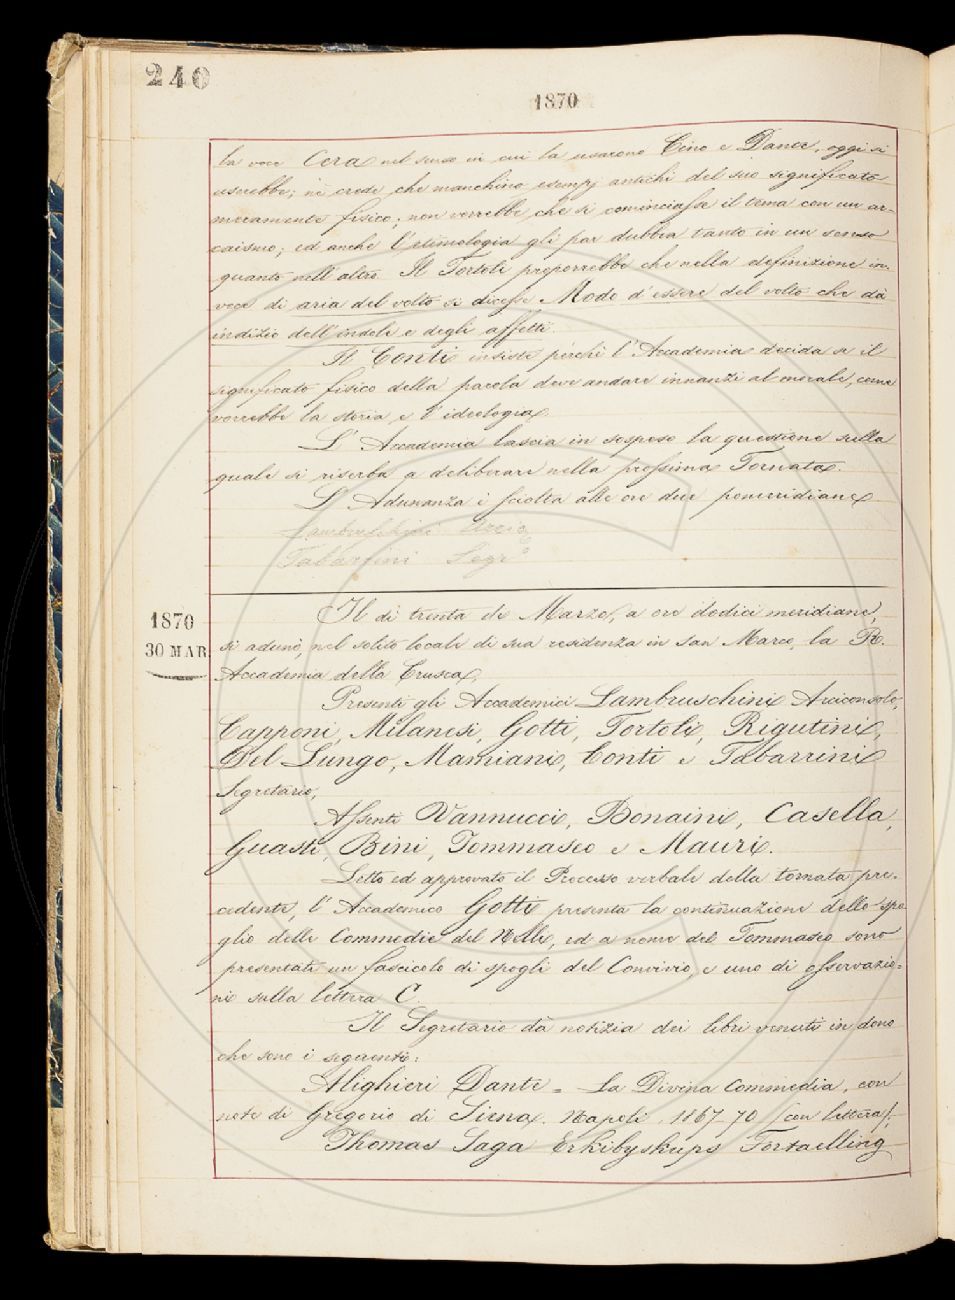 240
1870
la voce Cera nel senso in cui la usarono Cino e Dante, oggi si
userebbe; nè crede che manchino esempj antichi del suo significato
meramente fisico; non vorrebbe che si cominciasse il tema con un ar-
caismo; ed anche l'etimologia gli par dubbia tanto in un senso
quanto nell'altro. Il Tortoli proporrebbe che nella definizione in-
vece di aria del volto si dicesse Modo d'essere del volto che dà
indizio dell'indole e degli affetti.
Il Conti insiste perchè l'Accademia decida se il
significato fisico della parola deve andare innanzi al morale, come
vorrebbe la storia e l'ideologia.
L'Accademia lascia in sospeso la questione sulla
quale si riserba a deliberare nella prossima Tornata.
L'Adunanza è sciolta alle ore due pomeridiane
Lambruschini Arcic.o
Tabarrini Segr.o
1870
30 MAR.
Il dì trenta di Marzo, a ore dodici meridiane,
si adunò, nel solito locale di sua residenza in San Marco, la R.
Accademia della Crusca.
Presenti gli Accademici Lambruschini Arciconsolo,
Capponi, Milanesi, Gotti, Tortoli, Rigutini,
Del Lungo, Mamiani, Conti e Tabarrini
Segretario,
Assenti Vannucci, Bonaini, Casella,
Guasti, Bini, Tommaseo e Mauri.
Letto ed approvato il Processo verbale della tornata pre-
cedente, l'Accademico Gotti presenta la continuazione dello spo
glio delle Commedie del Nelli, ed a nome del Tommaseo sono
presentati un fascicolo di spogli del Convivio, e uno di osservazio-
ni sulla lettera C.
Il Segretario dà notizia dei libri venuti in dono
che sono i seguenti:
Alighieri Dante = La Divina Commedia, con
note di Gregorio di Siena. Napoli, 1867-70 (con lettera);
Thomas Saga Erkibyskups Fortaelling